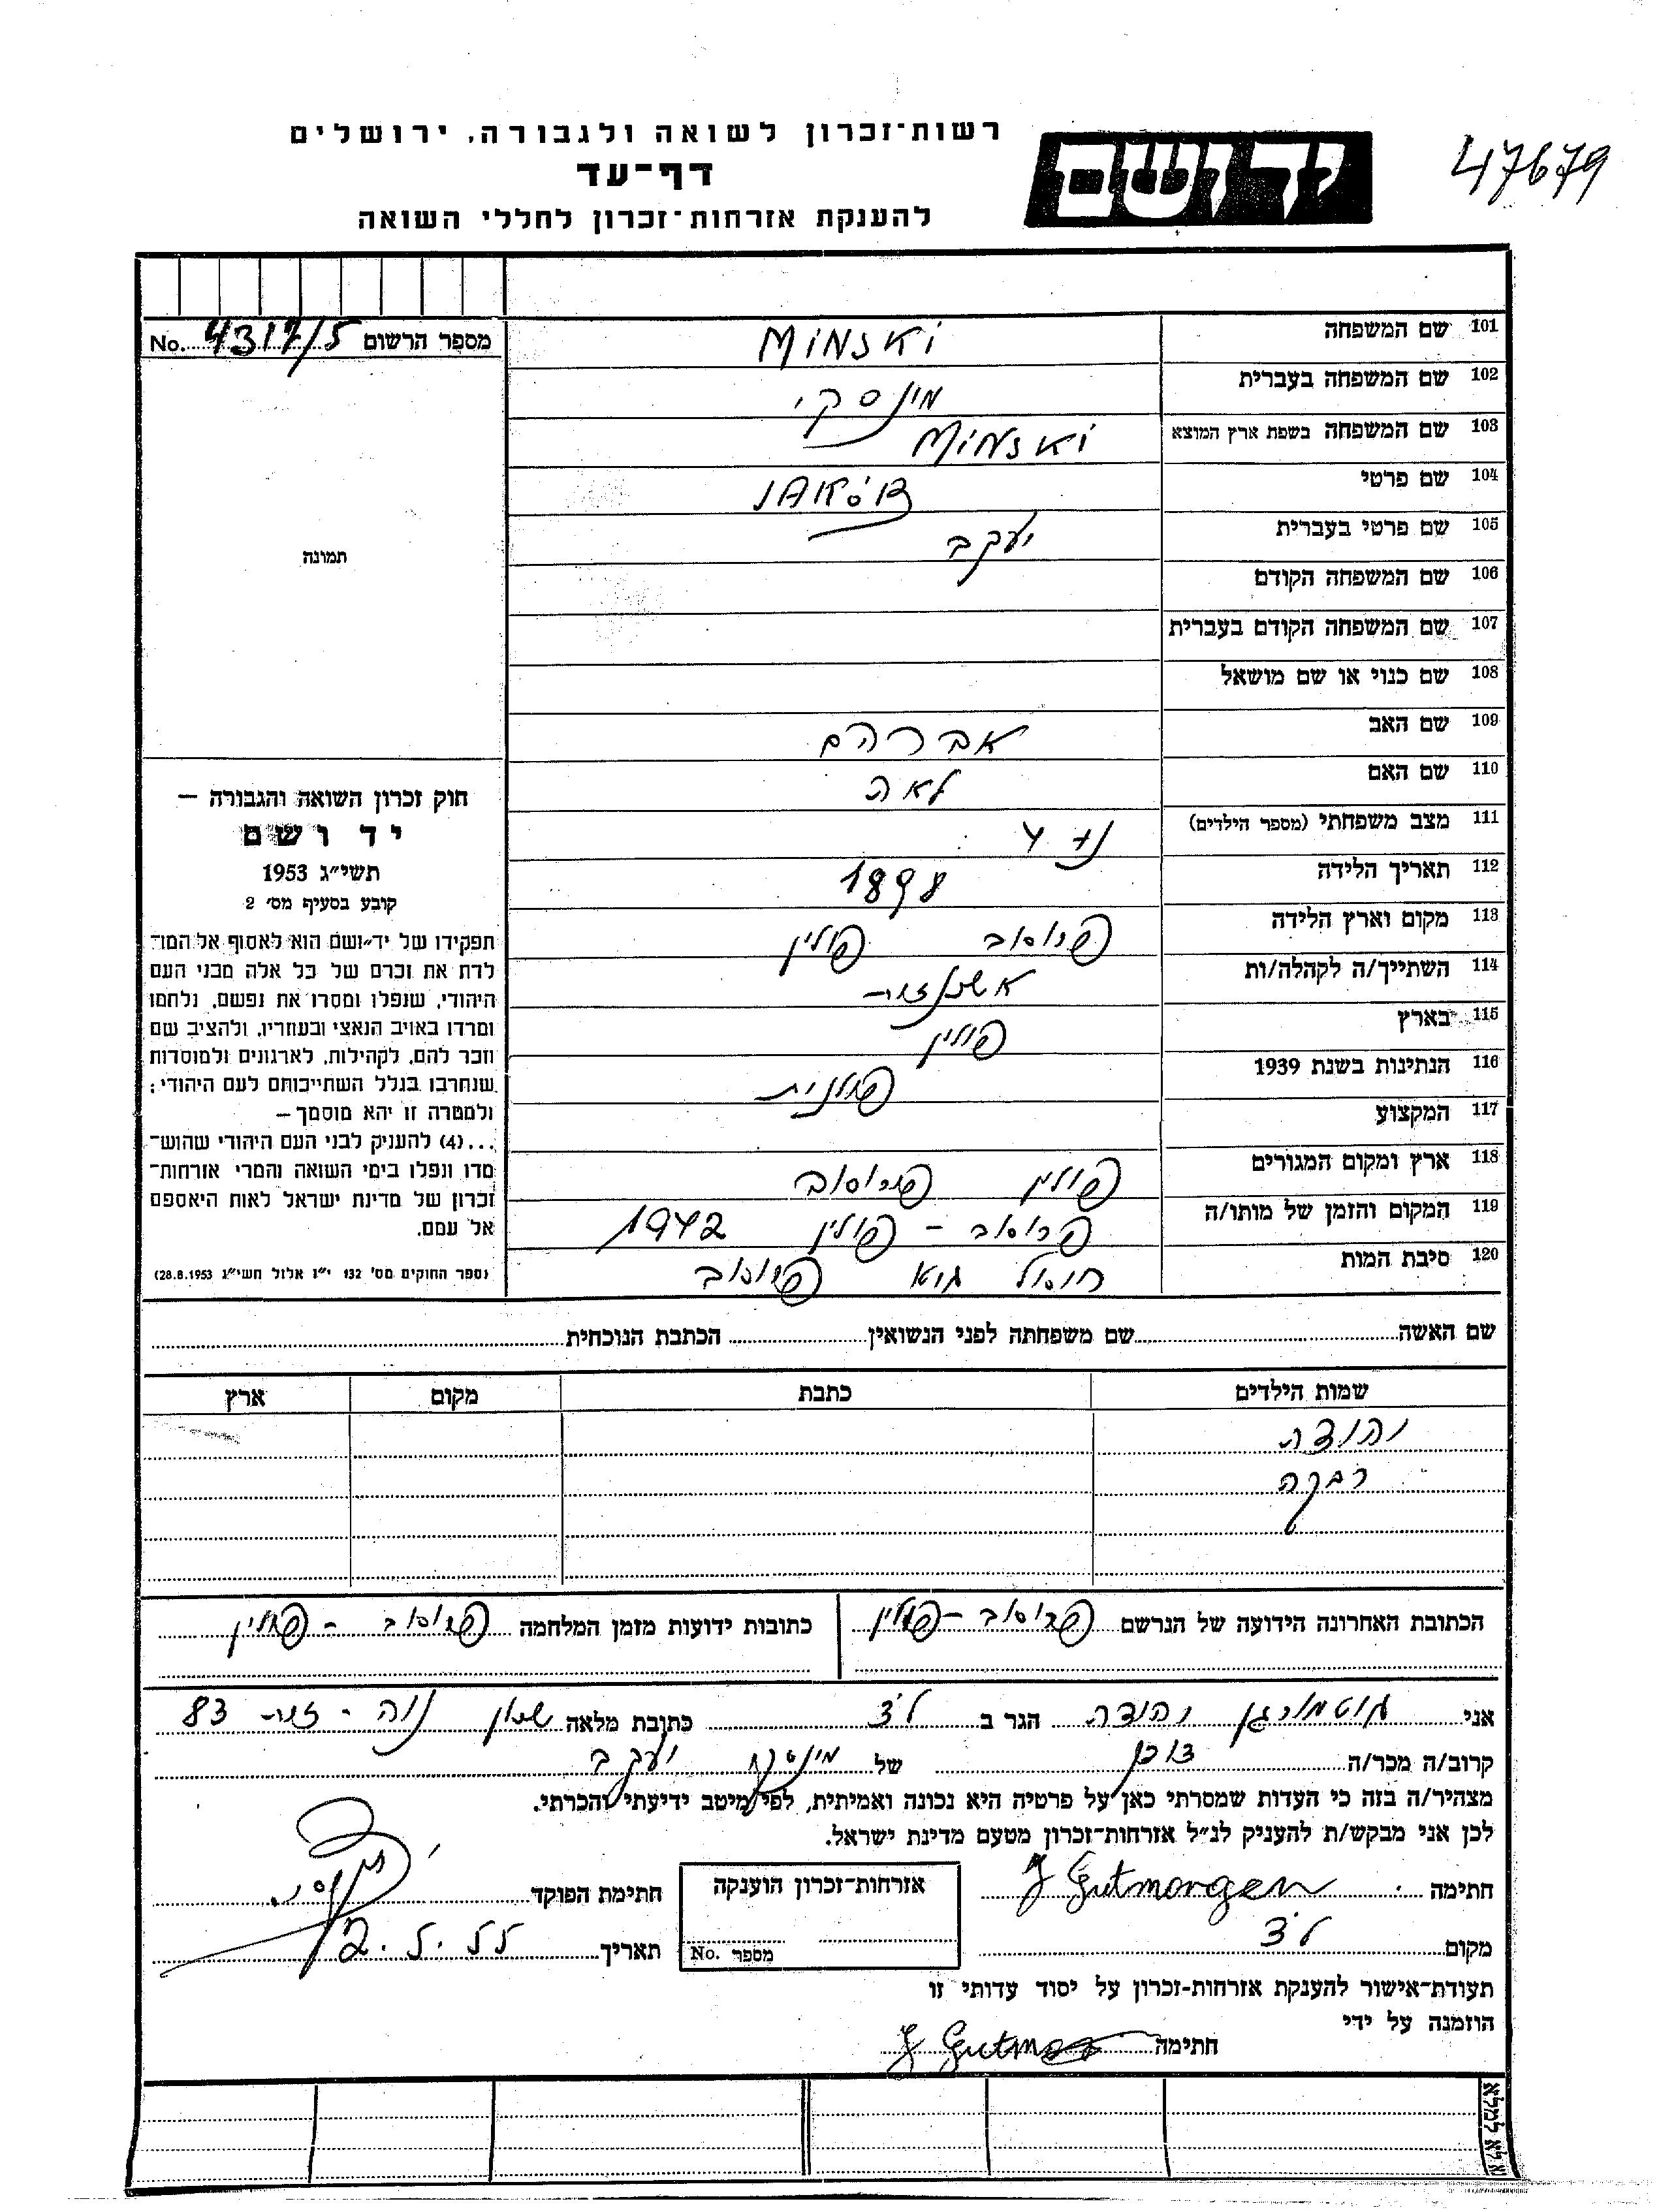 47679
יד ושם
רשות־זכרון לשואה ולגבורה, ירושלים
דף־עד
להענקת אזרחות־זכרון לחללי השואה
מספר הרשום 4317/5 No.
101 שם המשפחה MiNSKi
102 שם המשפחה בעברית מינסקי
103 שם המשפחה בשפת ארץ המוצא MiNSKi
104 שם פרטי JAKÓB
105 שם פרטי בעברית יעקב
106 שם המשפחה הקודם
107 שם המשפחה הקודם בעברית
108 שם כנוי או שם מושאל
109 שם האב אברהם
110 שם האם לאה
111 מצב משפחתי (מספר הילדים) 4
112 תאריך הלידה 1898
113 מקום וארץ הלידה פרוסוב פולין
114 השתייך/ה לקהלה/ות
115 בארץ פולין
116 הנתינות בשנת 1939 פולנית
117 המקצוע
118 ארץ ומקום המגורים פולין פרוסוב
119 המקום והזמן של מותו/ה פרוסוב - פולין 1942
120 סיבת המות חיסול גיטו פרוסוב
תמונה
חוק זכרון השואה והגבורה –
יד ושם
תשי״ג 1953
קובע בסעיף מס׳ 2
תפקידו של יד־ושם הוא לאסוף אל המו־
לדת את זכרם של כל אלה מבני העם
היהודי, שנפלו ומסרו את נפשם, נלחמו
ומרדו באויב הנאצי ובעוזריו, ולהציב שם
וזכר להם, לקהילות, לארגונים ולמוסדות
שנחרבו בגלל השתייכותם לעם היהודי;
ולמטרה זו יהא מוסמך –
...(4) להעניק לבני העם היהודי שהוש־
מדו ונפלו בימי השואה והמרי אזרחות־
זכרון של מדינת ישראל לאות היאספם
אל עמם.
(ספר החוקים מס׳ 132 י״ז אלול תשי״ג 28.8.1953)
שם האשה שם משפחתה לפני הנשואין הכתבת הנוכחית
שמות הילדים כתבת מקום ארץ
יהודה
רבקה
הכתובת האחרונה הידועה של הנרשם פרוסוב - פולין
כתובות ידועות מזמן המלחמה פרוסוב - פולין
אני גוטמורגן יהודה הגר ב לוד כתובת מלאה שכון נוה - זית 83
קרוב/ה מכר/ה של מינסקי יעקב
מצהיר/ה בזה כי העדות שמסרתי כאן על פרטיה היא נכונה ואמיתית, לפי מיטב ידיעתי והכרתי.
לכן אני מבקש/ת להעניק לנ״ל אזרחות־זכרון מטעם מדינת ישראל.
חתימה J Gutmorgen
אזרחות־זכרון הוענקה
מספר No.
חתימת הפוקד
מקום לוד
תאריך 2.5.55
תעודת־אישור להענקת אזרחות־זכרון על יסוד עדותי זו
הוזמנה על ידי
חתימה
נא לא למלא